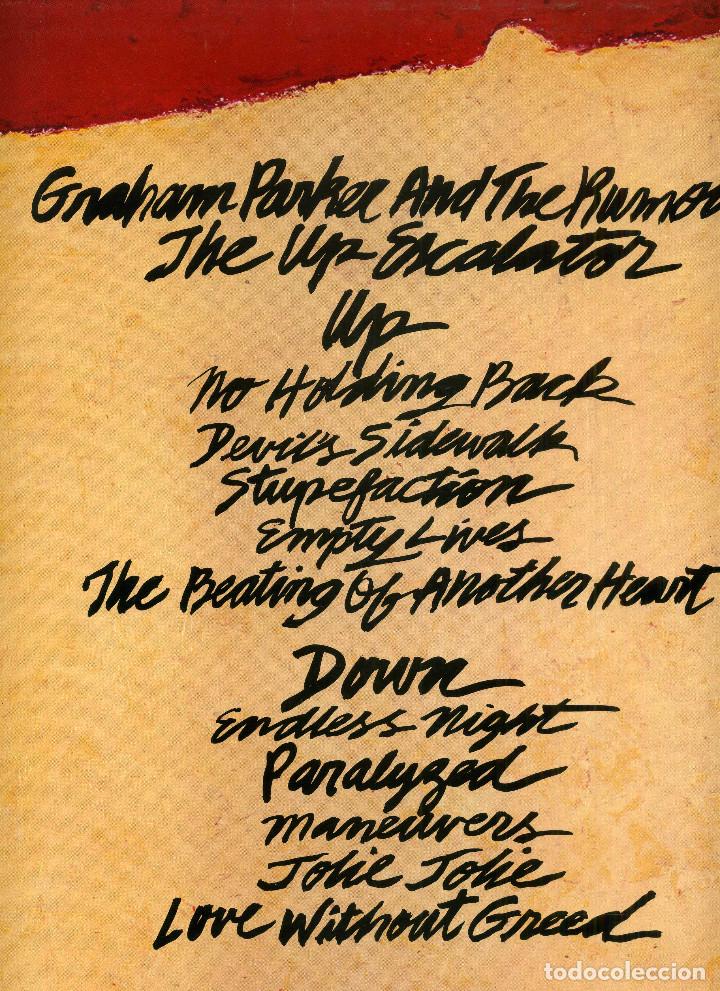 Graham Parker And The Rumou
The Up Escalator
Up
No Holding Back
Devil's Sidewalk
Stupefaction
Empty Lives
The Beating Of Another Heart
Down
Endless Night
Paralyzed
Maneuvers
Jolie Jolie
Love Without Greed
todocoleccion